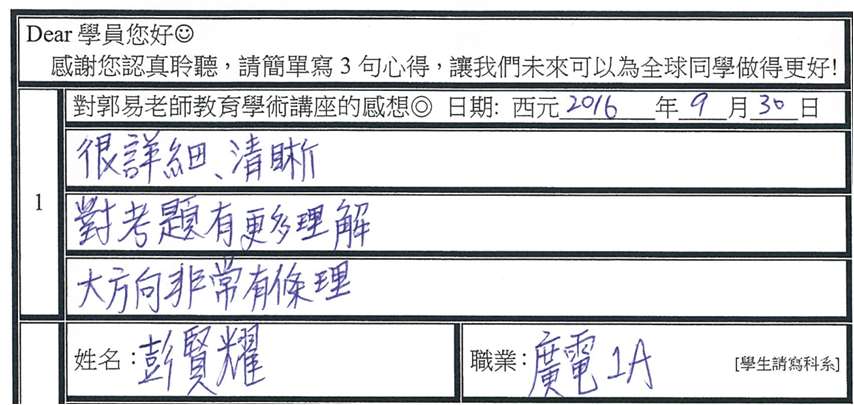 Dear 學員您好☺
感謝您認真聆聽，請簡單寫 3 句心得，讓我們未來可以為全球同學做得更好!
1
對郭易老師教育學術講座的感想◎ 日期: 西元 2016 年 9 月 30 日
很詳細、清晰
對考題有更多理解
大方向非常有條理
姓名：彭賢耀 職業：廣電1A [學生請寫科系]